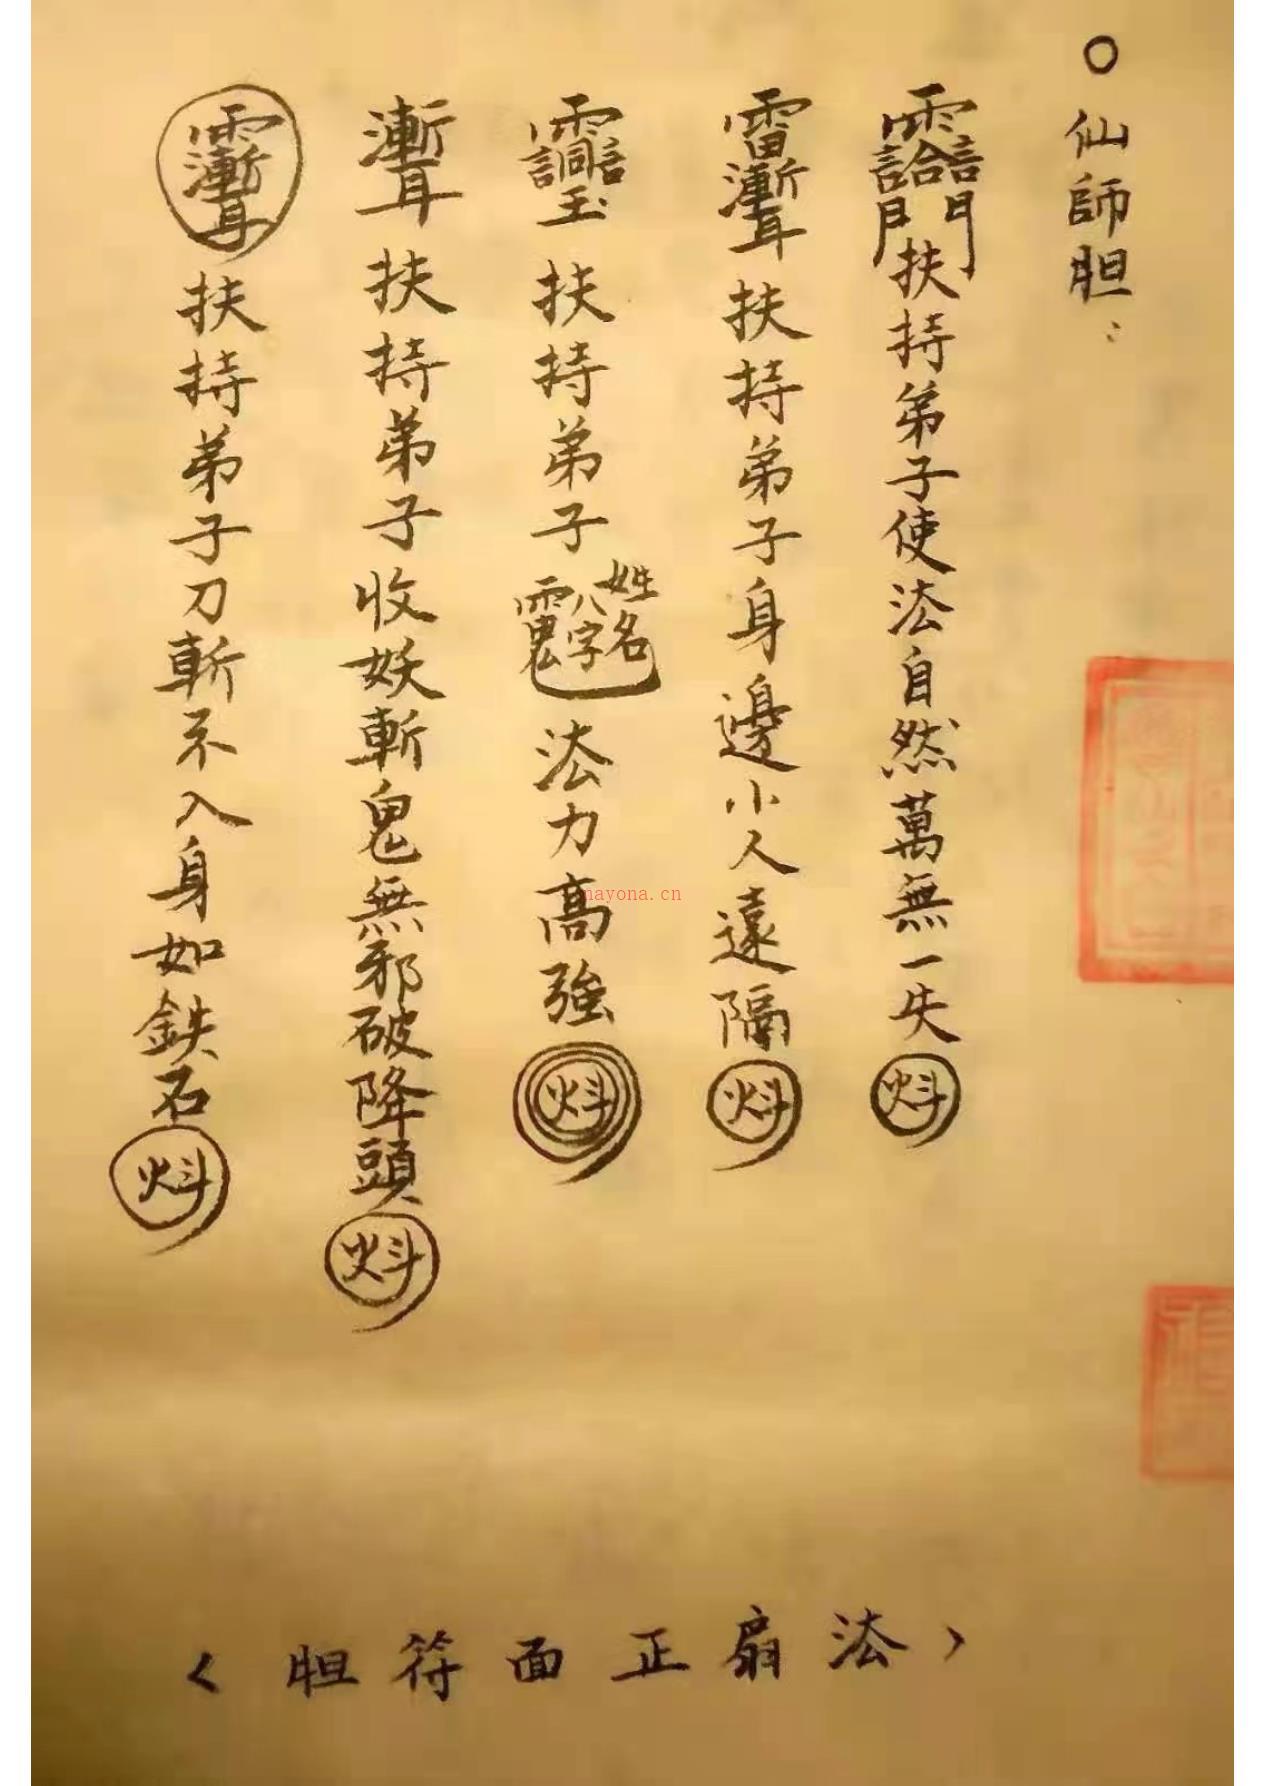 ○仙師胆：
扶持弟子使法自然萬無一失
扶持弟子身邊小人遠隔
扶持弟子姓名八字法力高強
扶持弟子收妖斬鬼無邪破降頭
扶持弟子刀斬不入身如鉄石
nayona.cn
<胆符面正扇法>